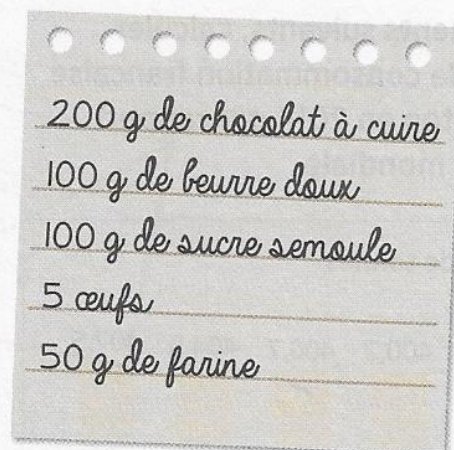 200 g de chocolat à cuire
100 g de beurre doux
100 g de sucre semoule
5 œufs
50 g de farine